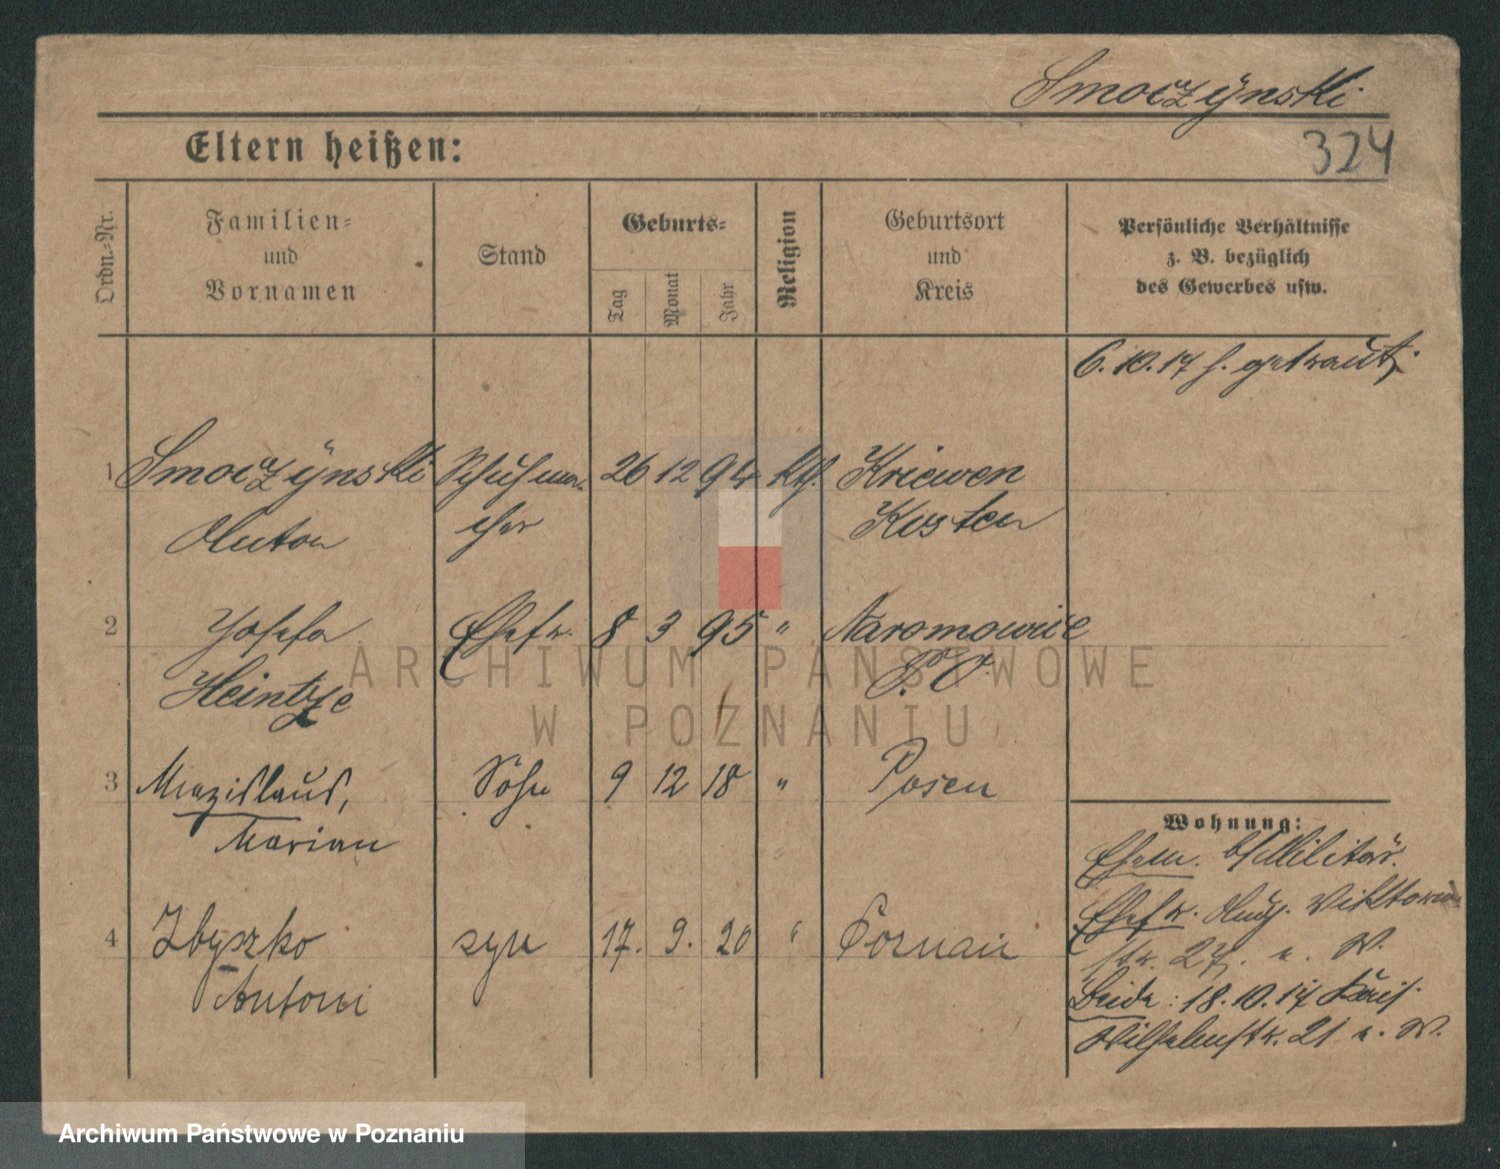 Smoczynski
324
Eltern heißen:
Ordn.-Nr.
Familien-
und
Vornamen
Stand
Geburts-
Tag
Monat
Jahr
Religion
Geburtsort
und
Kreis
Persönliche Verhältnisse
z. B. bezüglich
des Gewerbes usw.
6.10.17 h. getraut
1 Smoczynski Schuhma- 26 12 94 kth. Kriewen
Anton cher Kosten
2 Josefa Ehefr. 8 3 95 " Naromowice
Heintze P. O.
3 Miezislaus, Sohn 9 12 18 " Posen
Marian
4 Zbyszko syn 17. 9. 20 " Poznań
Antoni
Wohnung:
Ehem. b/Militär.
Ehefr. Aug. Viktoria
str. 27. u. W.
Beide: 18.10.17 Kais.
Wilhelmstr. 21 u. W.
ARCHIWUM PAŃSTWOWE
W POZNANIU
Archiwum Państwowe w Poznaniu